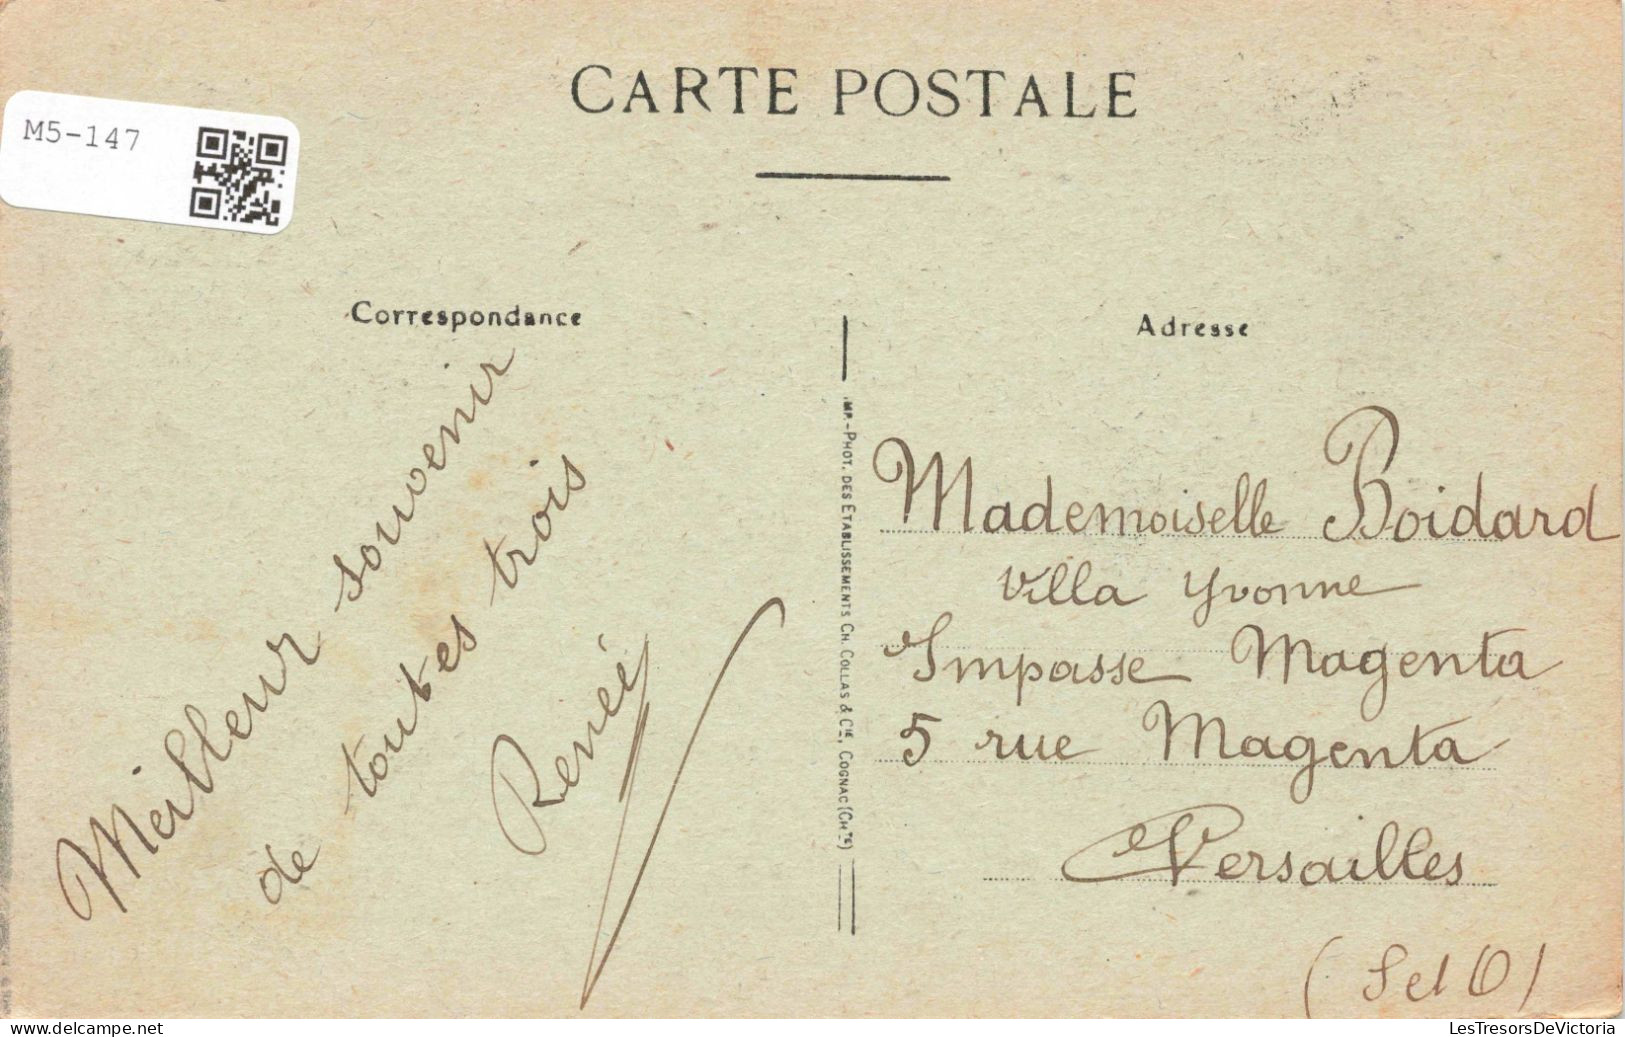 CARTE POSTALE
M5-147
Correspondance
Meilleur souvenir
de toutes trois
Renée
.MP.-PHOT. DES ETABLISSEMENTS CH. COLLAS & CIE, COGNAC (CHTE)
Adresse
Mademoiselle Boidard
Villa Yvonne
Impasse Magenta
5 rue Magenta
Versailles
(S et O)
www.delcampe.net
LesTresorsDeVictoria